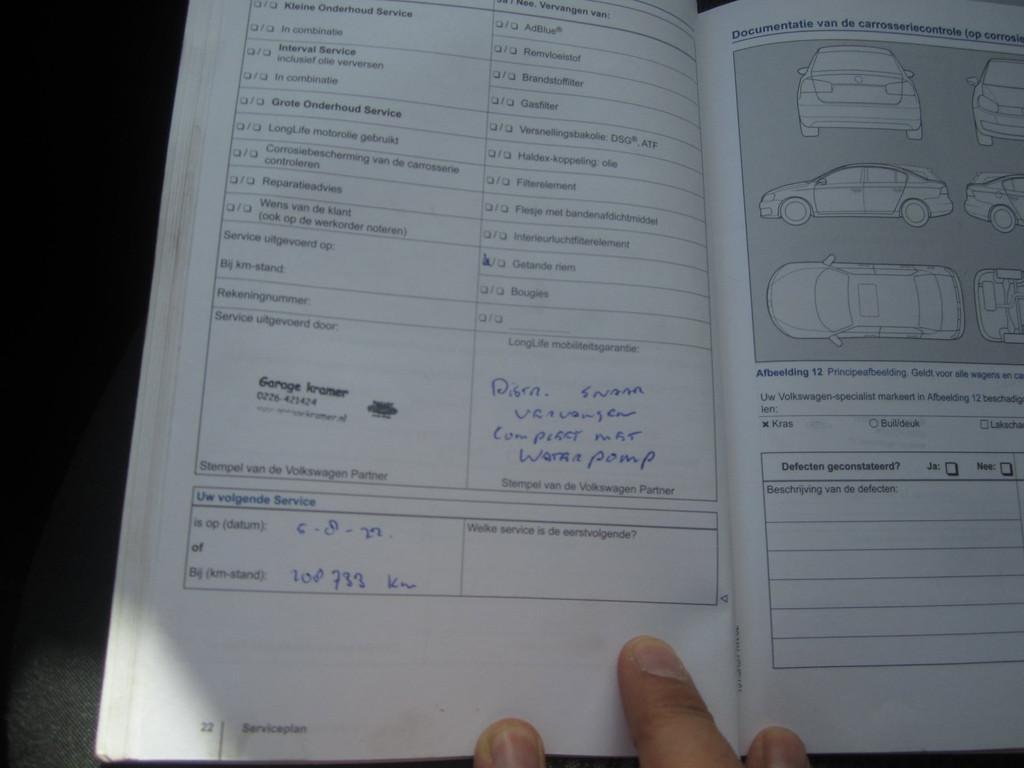 ❑/❑ Kleine Onderhoud Service
❑/❑ In combinatie
❑/❑ Interval Service
inclusief olie verversen
❑/❑ In combinatie
❑/❑ Grote Onderhoud Service
❑/❑ LongLife motorolie gebruikt
❑/❑ Corrosiebescherming van de carrosserie
controleren
❑/❑ Reparatieadvies
❑/❑ Wens van de klant
(ook op de werkorder noteren)
Service uitgevoerd op:
Bij km-stand:
Rekeningnummer:
Service uitgevoerd door:
Garage kramer
0226-421424
Stempel van de Volkswagen Partner
Ja / Nee. Vervangen van:
❑/❑ AdBlue®
❑/❑ Remvloeistof
❑/❑ Brandstoffilter
❑/❑ Gasfilter
❑/❑ Versnellingsbakolie: DSG®, ATF
❑/❑ Haldex-koppeling: olie
❑/❑ Filterelement
❑/❑ Flesje met bandenafdichtmiddel
❑/❑ Interieurluchtfilterelement
❑/❑ Getande riem
❑/❑ Bougies
❑/❑
LongLife mobiliteitsgarantie:
Distr. snaar
vervangen
Compleet met
Waterpomp
Stempel van de Volkswagen Partner
Uw volgende Service
is op (datum): 6-8-22.
of
Bij (km-stand): 208 733 Km
Welke service is de eerstvolgende?
22 Serviceplan
Documentatie van de carrosseriecontrole (op corrosie
Afbeelding 12 Principeafbeelding. Geldt voor alle wagens en
Uw Volkswagen-specialist markeert in Afbeelding 12
len:
× Kras ○ Buil/deuk ❑
Defecten geconstateerd? Ja: ❑ Nee: ❑
Beschrijving van de defecten: